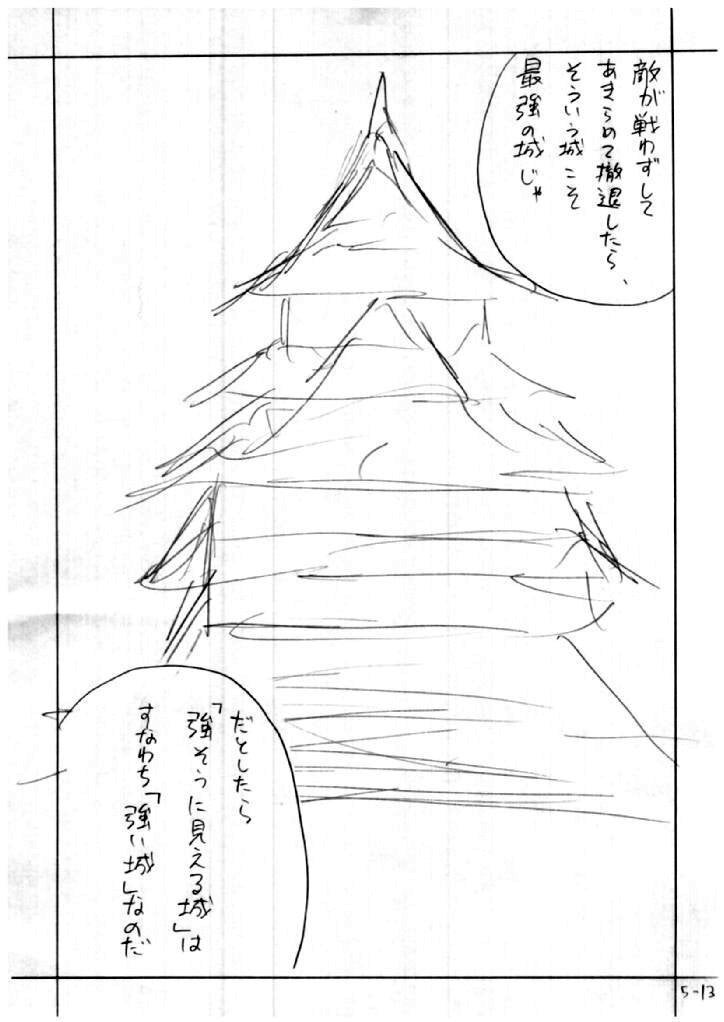 敵が戦わずして
あきらめて撤退したら、
そういう城こそ
最強の城じゃ
だとしたら
「強そうに見える城」は
すなわち「強い城」なのだ
5-13